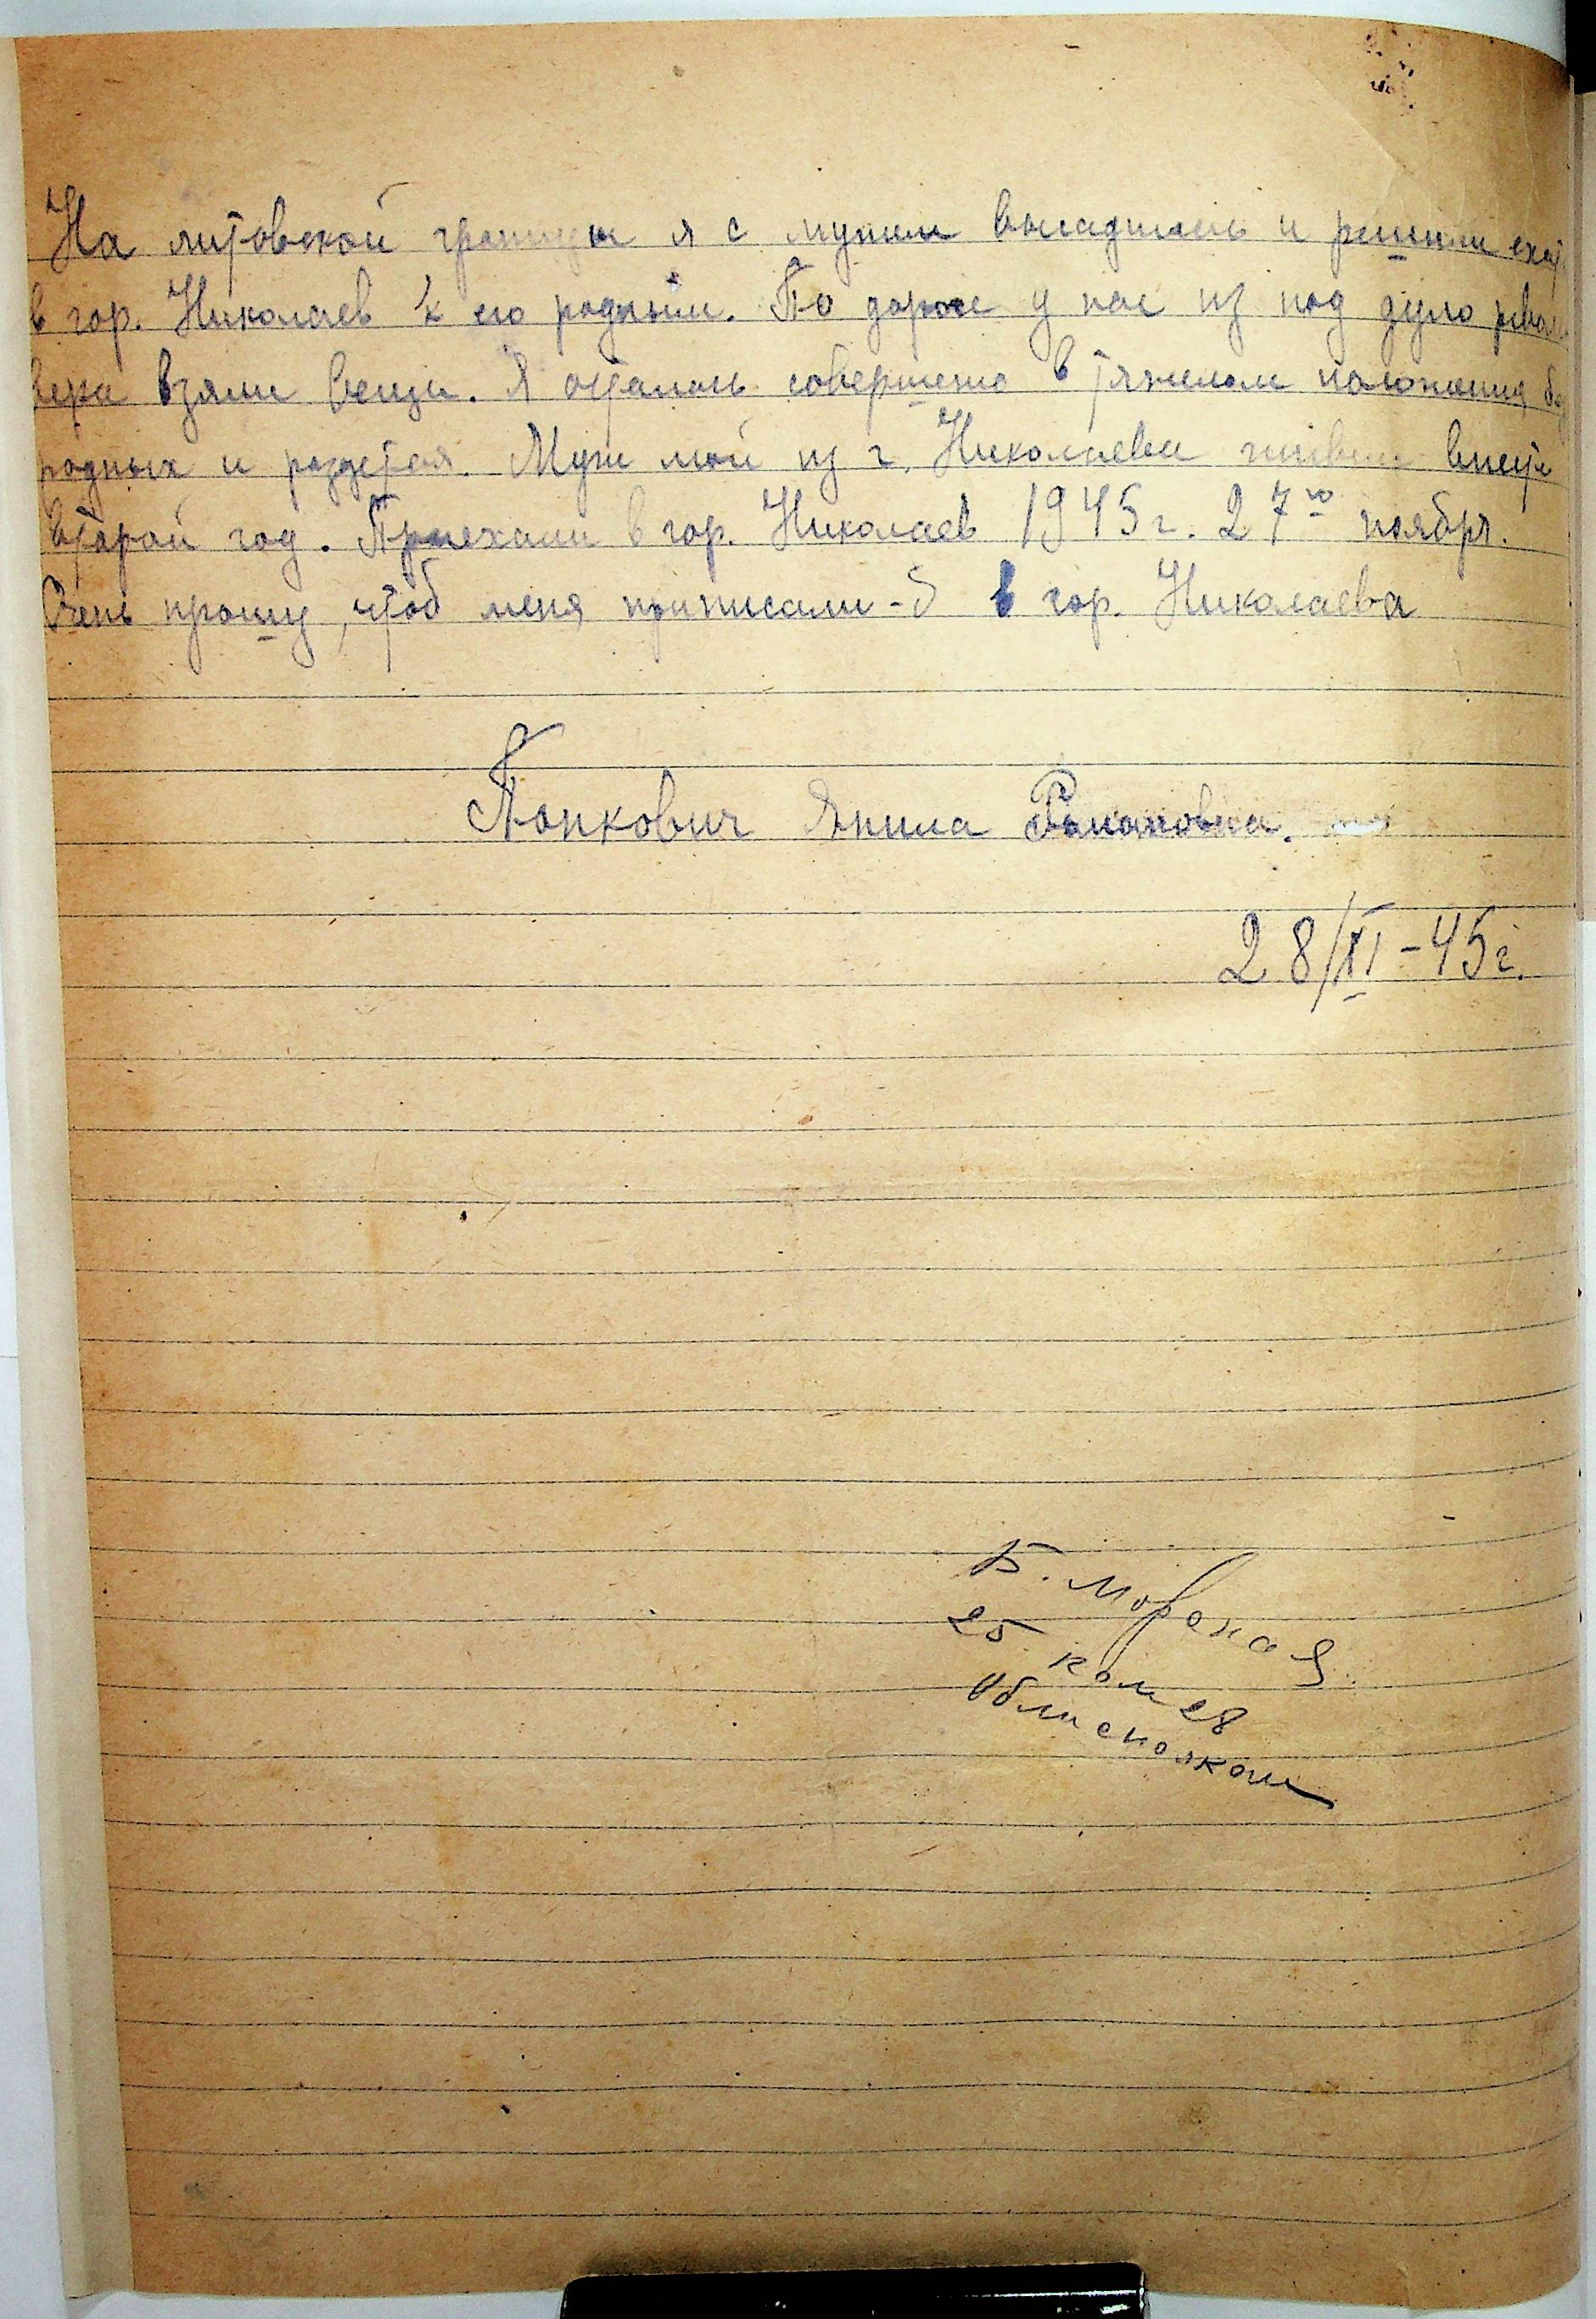 На литовской границы я с мужом высадились и решили ехат
в гор. Николаев к его родным. По дороге у нас из под дуло рвали
вера взяли вещи. Я осталась совершено в тяжелом положения бе
родных и раздетая. Муж мой из г. Николаева живем вместе
второй год. Приехали в гор. Николаев 1945 г. 27го ноября.
Очень прошу, чтоб меня прописали-б в гор. Николаева
Попкович Янина Романовна.
28/XI-45г.
Б. Морская
25 ком 28
Облисполком